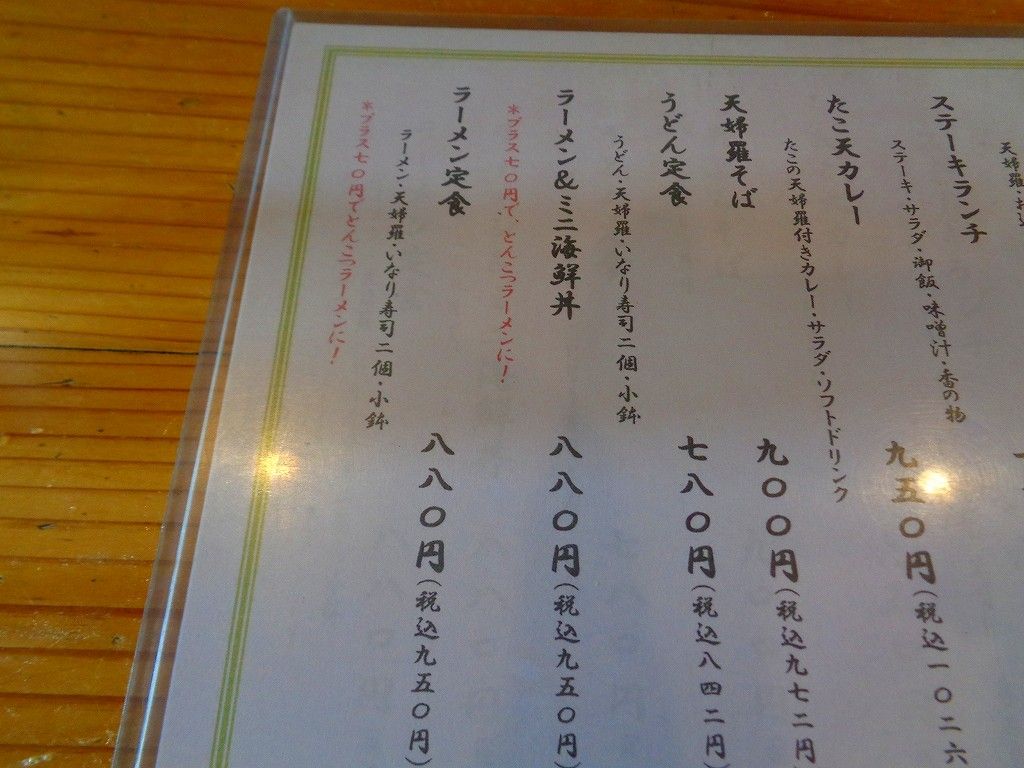 天婦羅・お
ステーキランチ
ステーキ・サラダ・御飯・味噌汁・香の物
たこ天カレー 九五〇円(税込一〇二六
たこの天婦羅付きカレー・サラダ・ソフトドリンク
天婦羅そば 九〇〇円(税込九七二円
うどん定食 七八〇円(税込八四二円
うどん・天婦羅・いなり寿司二個・小鉢
ラーメン&ミニ海鮮丼 八八〇円(税込九五〇円)
*プラス七〇円で、とんこつラーメンに!
ラーメン定食 八八〇円(税込九五〇円)
ラーメン・天婦羅・いなり寿司二個・小鉢
*プラス七〇円でとんこつラーメンに!